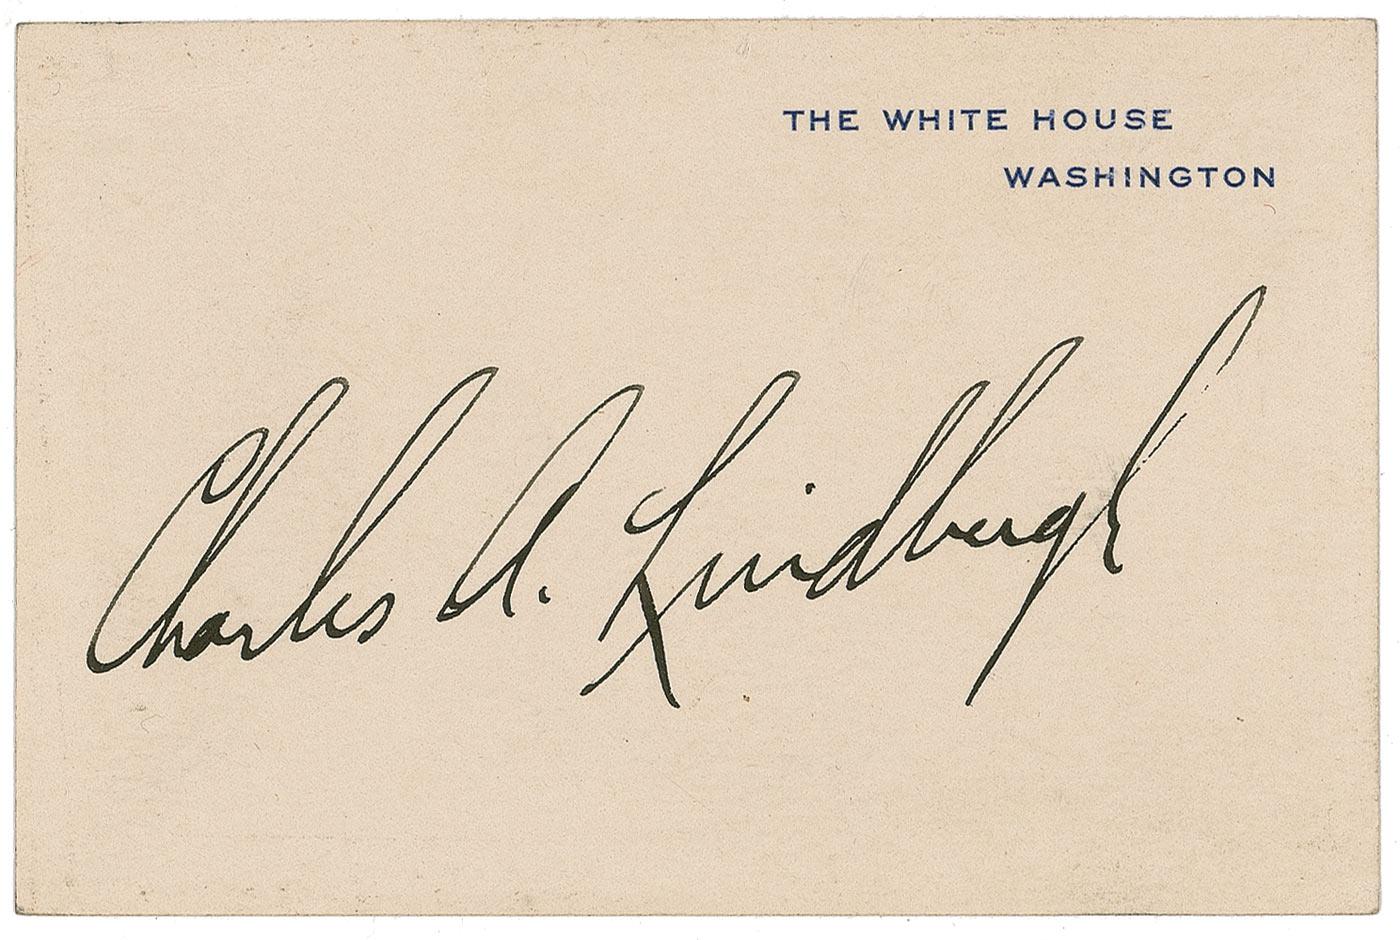 THE WHITE HOUSE
WASHINGTON
Charles A. Lindbergh